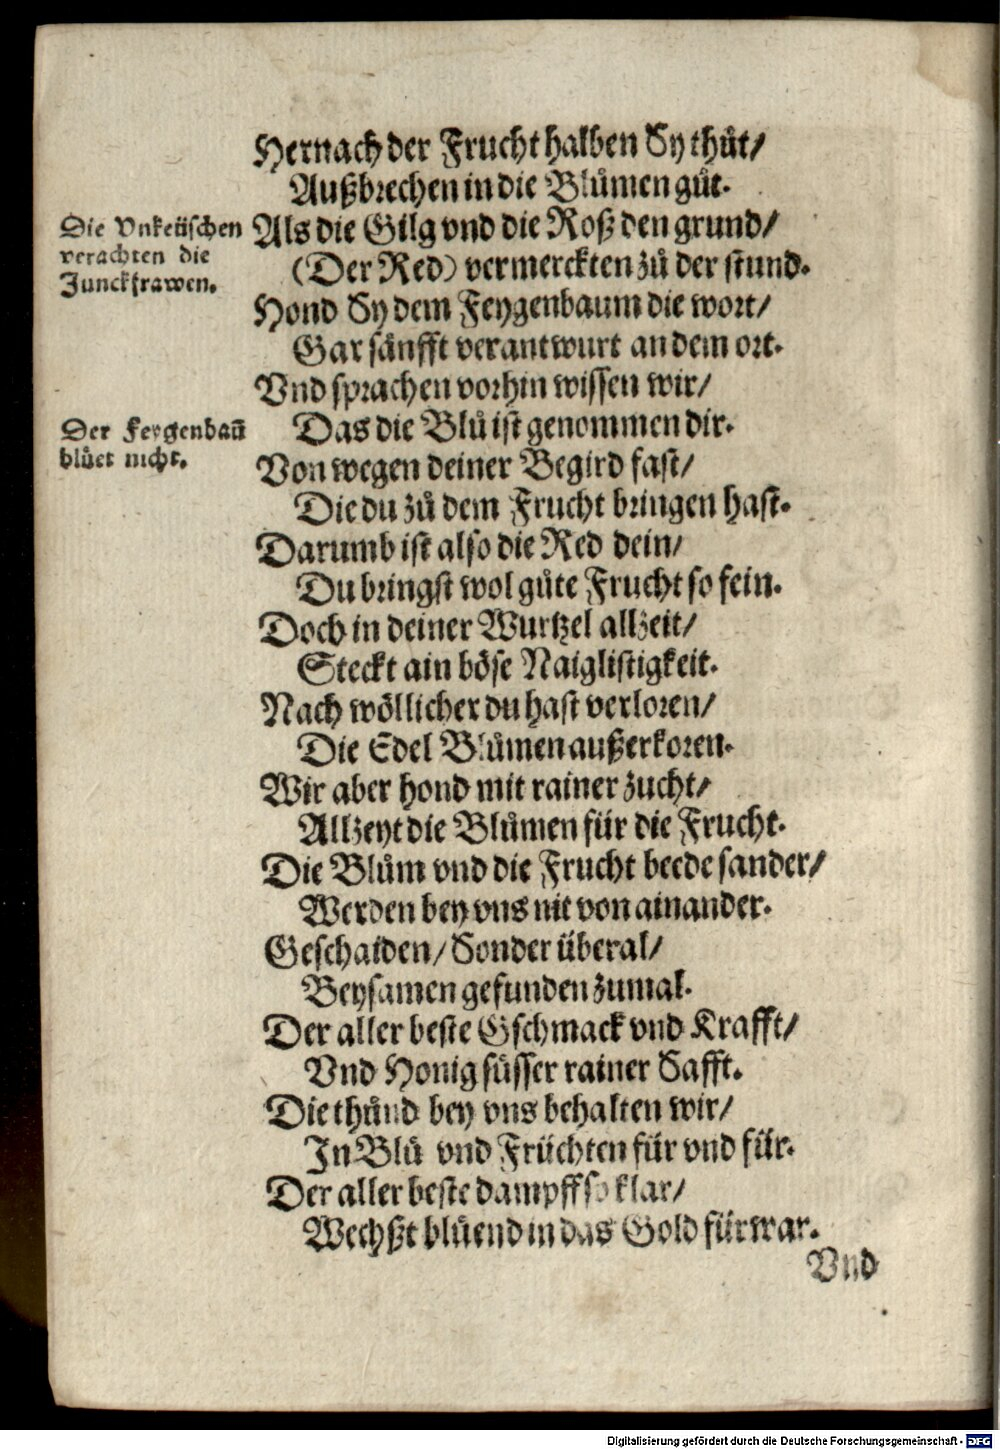 Hernach der Frucht halben Sy thuͤt/
Außbrechen in die Bluͤmen guͤt.
Die Vnkeüschen
verachten die
Junckfrawen.
Als die Gilg vnd die Roß den grund/
(Der Red) vermerckten zuͤ der stund.
Hond Sy dem Feygenbaum die wort/
Gar sänfft verantwurt an dem ort.
Vnd sprachen vorhin wissen wir/
Der Feygenbaū
bluͤet nicht.
Das die Bluͤ ist genommen dir.
Von wegen deiner Begird fast/
Die du zuͤ dem Frucht bringen hast.
Darumb ist also die Red dein/
Du bringst wol guͤte Frucht so fein.
Doch in deiner Wurtzel allzeit/
Steckt ain böse Naiglistigkeit.
Nach wöllicher du hast verloren/
Die Edel Bluͤmen außerkoren.
Wir aber hond mit rainer zucht/
Allzeyt die Bluͤmen für die Frucht.
Die Bluͤm vnd die Frucht beede sander/
Werden bey vns nit von ainander.
Geschaiden/ Sonder überal/
Beysamen gefunden zumal.
Der aller beste Gschmack vnd Krafft/
Vnd Honig süsser rainer Safft.
Die thuͤnd bey vns behalten wir/
In Bluͤ vnd Früchten für vnd für.
Der aller beste dampff so klar/
Wechßt bluͤend in das Gold fürwar.
Vnd
Digitalisierung gefördert durch die Deutsche Forschungsgemeinschaft - DFG